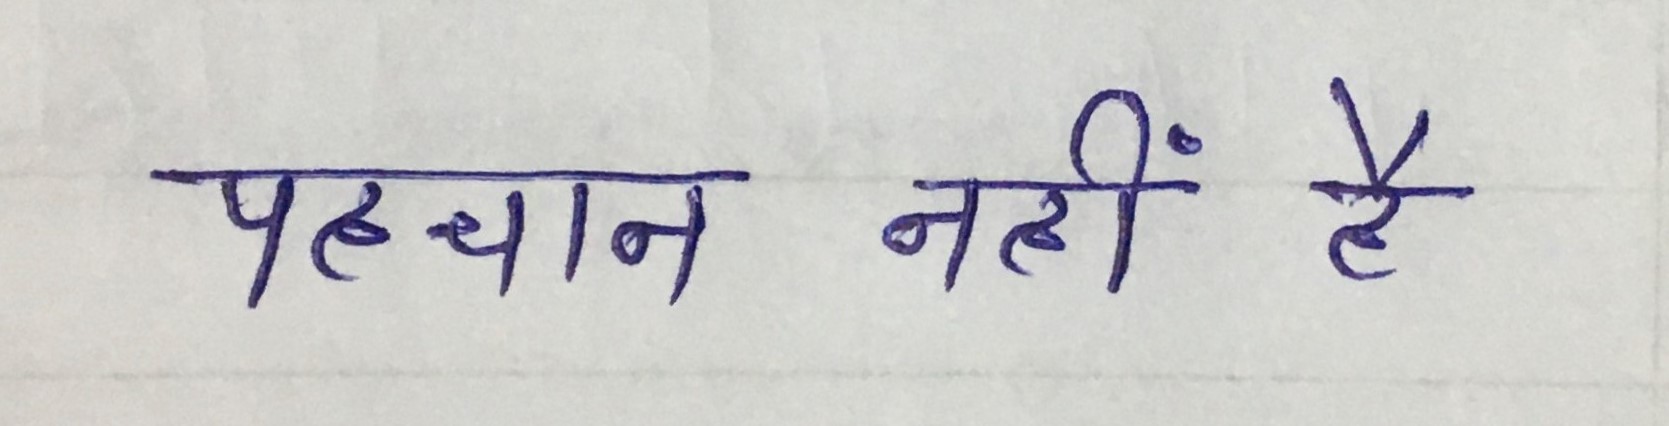 पहचान नहीं है